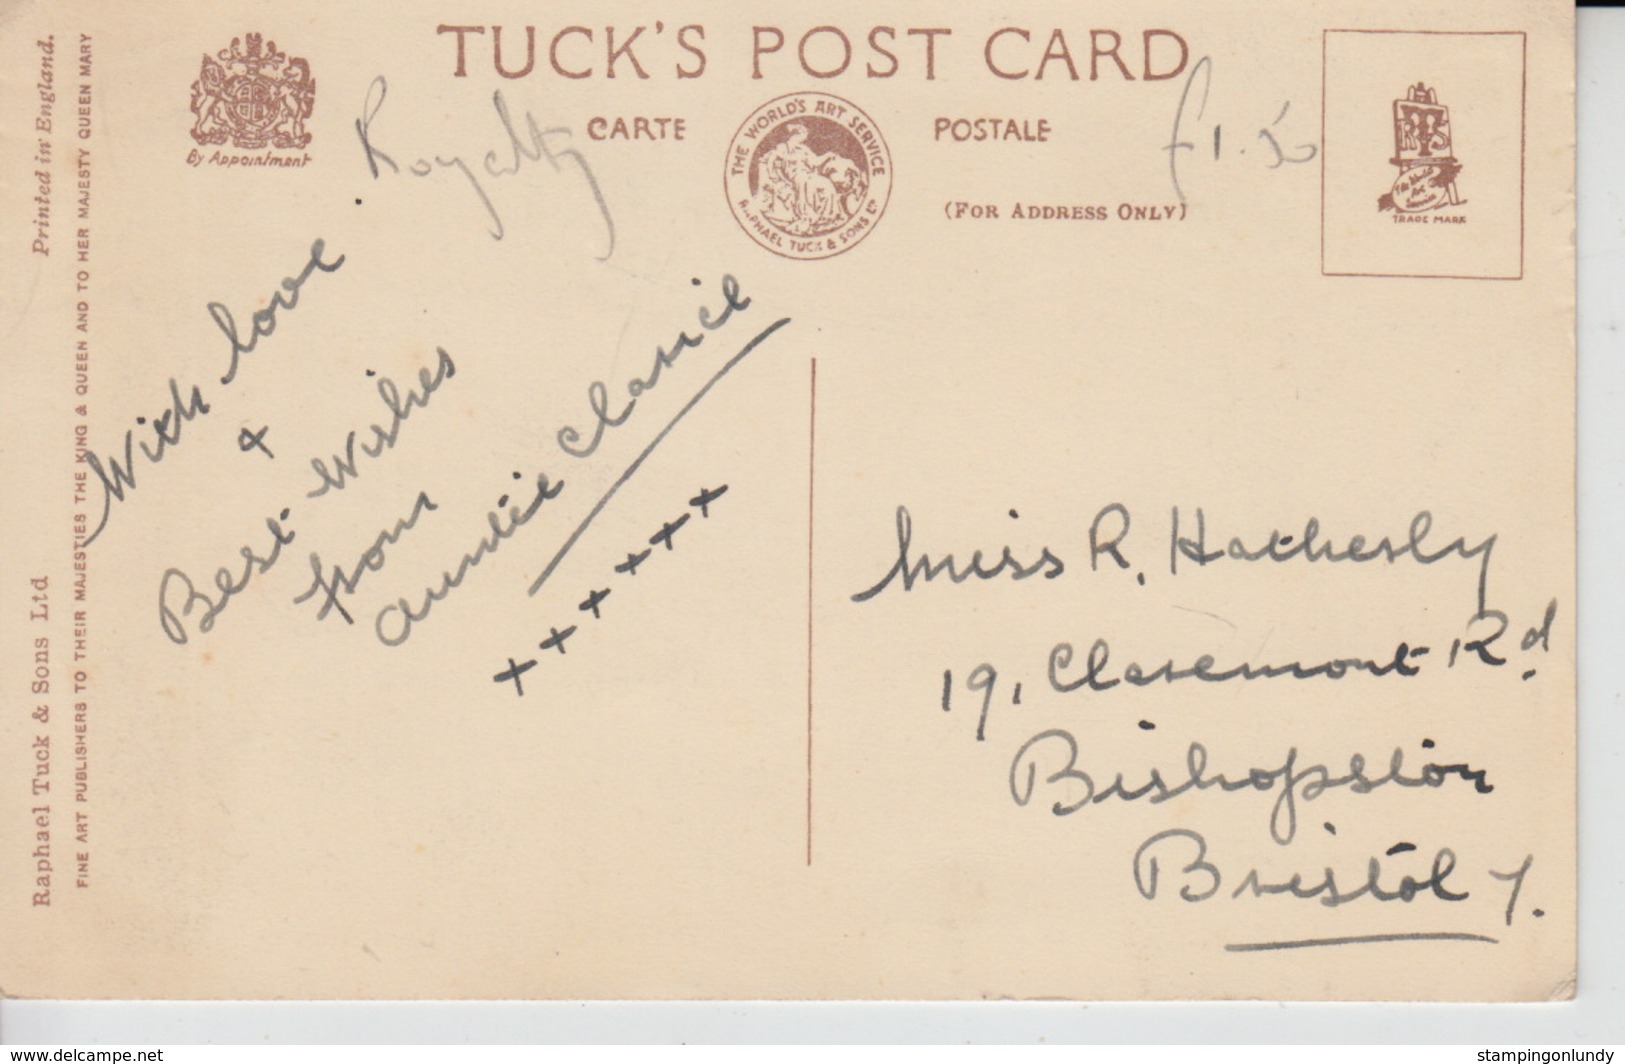 TUCK'S POST CARD
CARTE POSTALE
(FOR ADDRESS ONLY)
By Appointment
THE WORLD'S ART SERVICE
RAPHAEL TUCK & SONS LTD
RTS
The World's
Art
Service
TRADE MARK
Royalty
£1.50
Printed in England.
Raphael Tuck & Sons Ltd
FINE ART PUBLISHERS TO THEIR MAJESTIES THE KING & QUEEN AND TO HER MAJESTY QUEEN MARY
With love
&
Best wishes
from
auntie Clarice
x x x x x x
Miss R. Hatherly
19, Claremont Rd.
Bishopston
Bristol 7.
https://www.delcampe.net
stampingonlundy